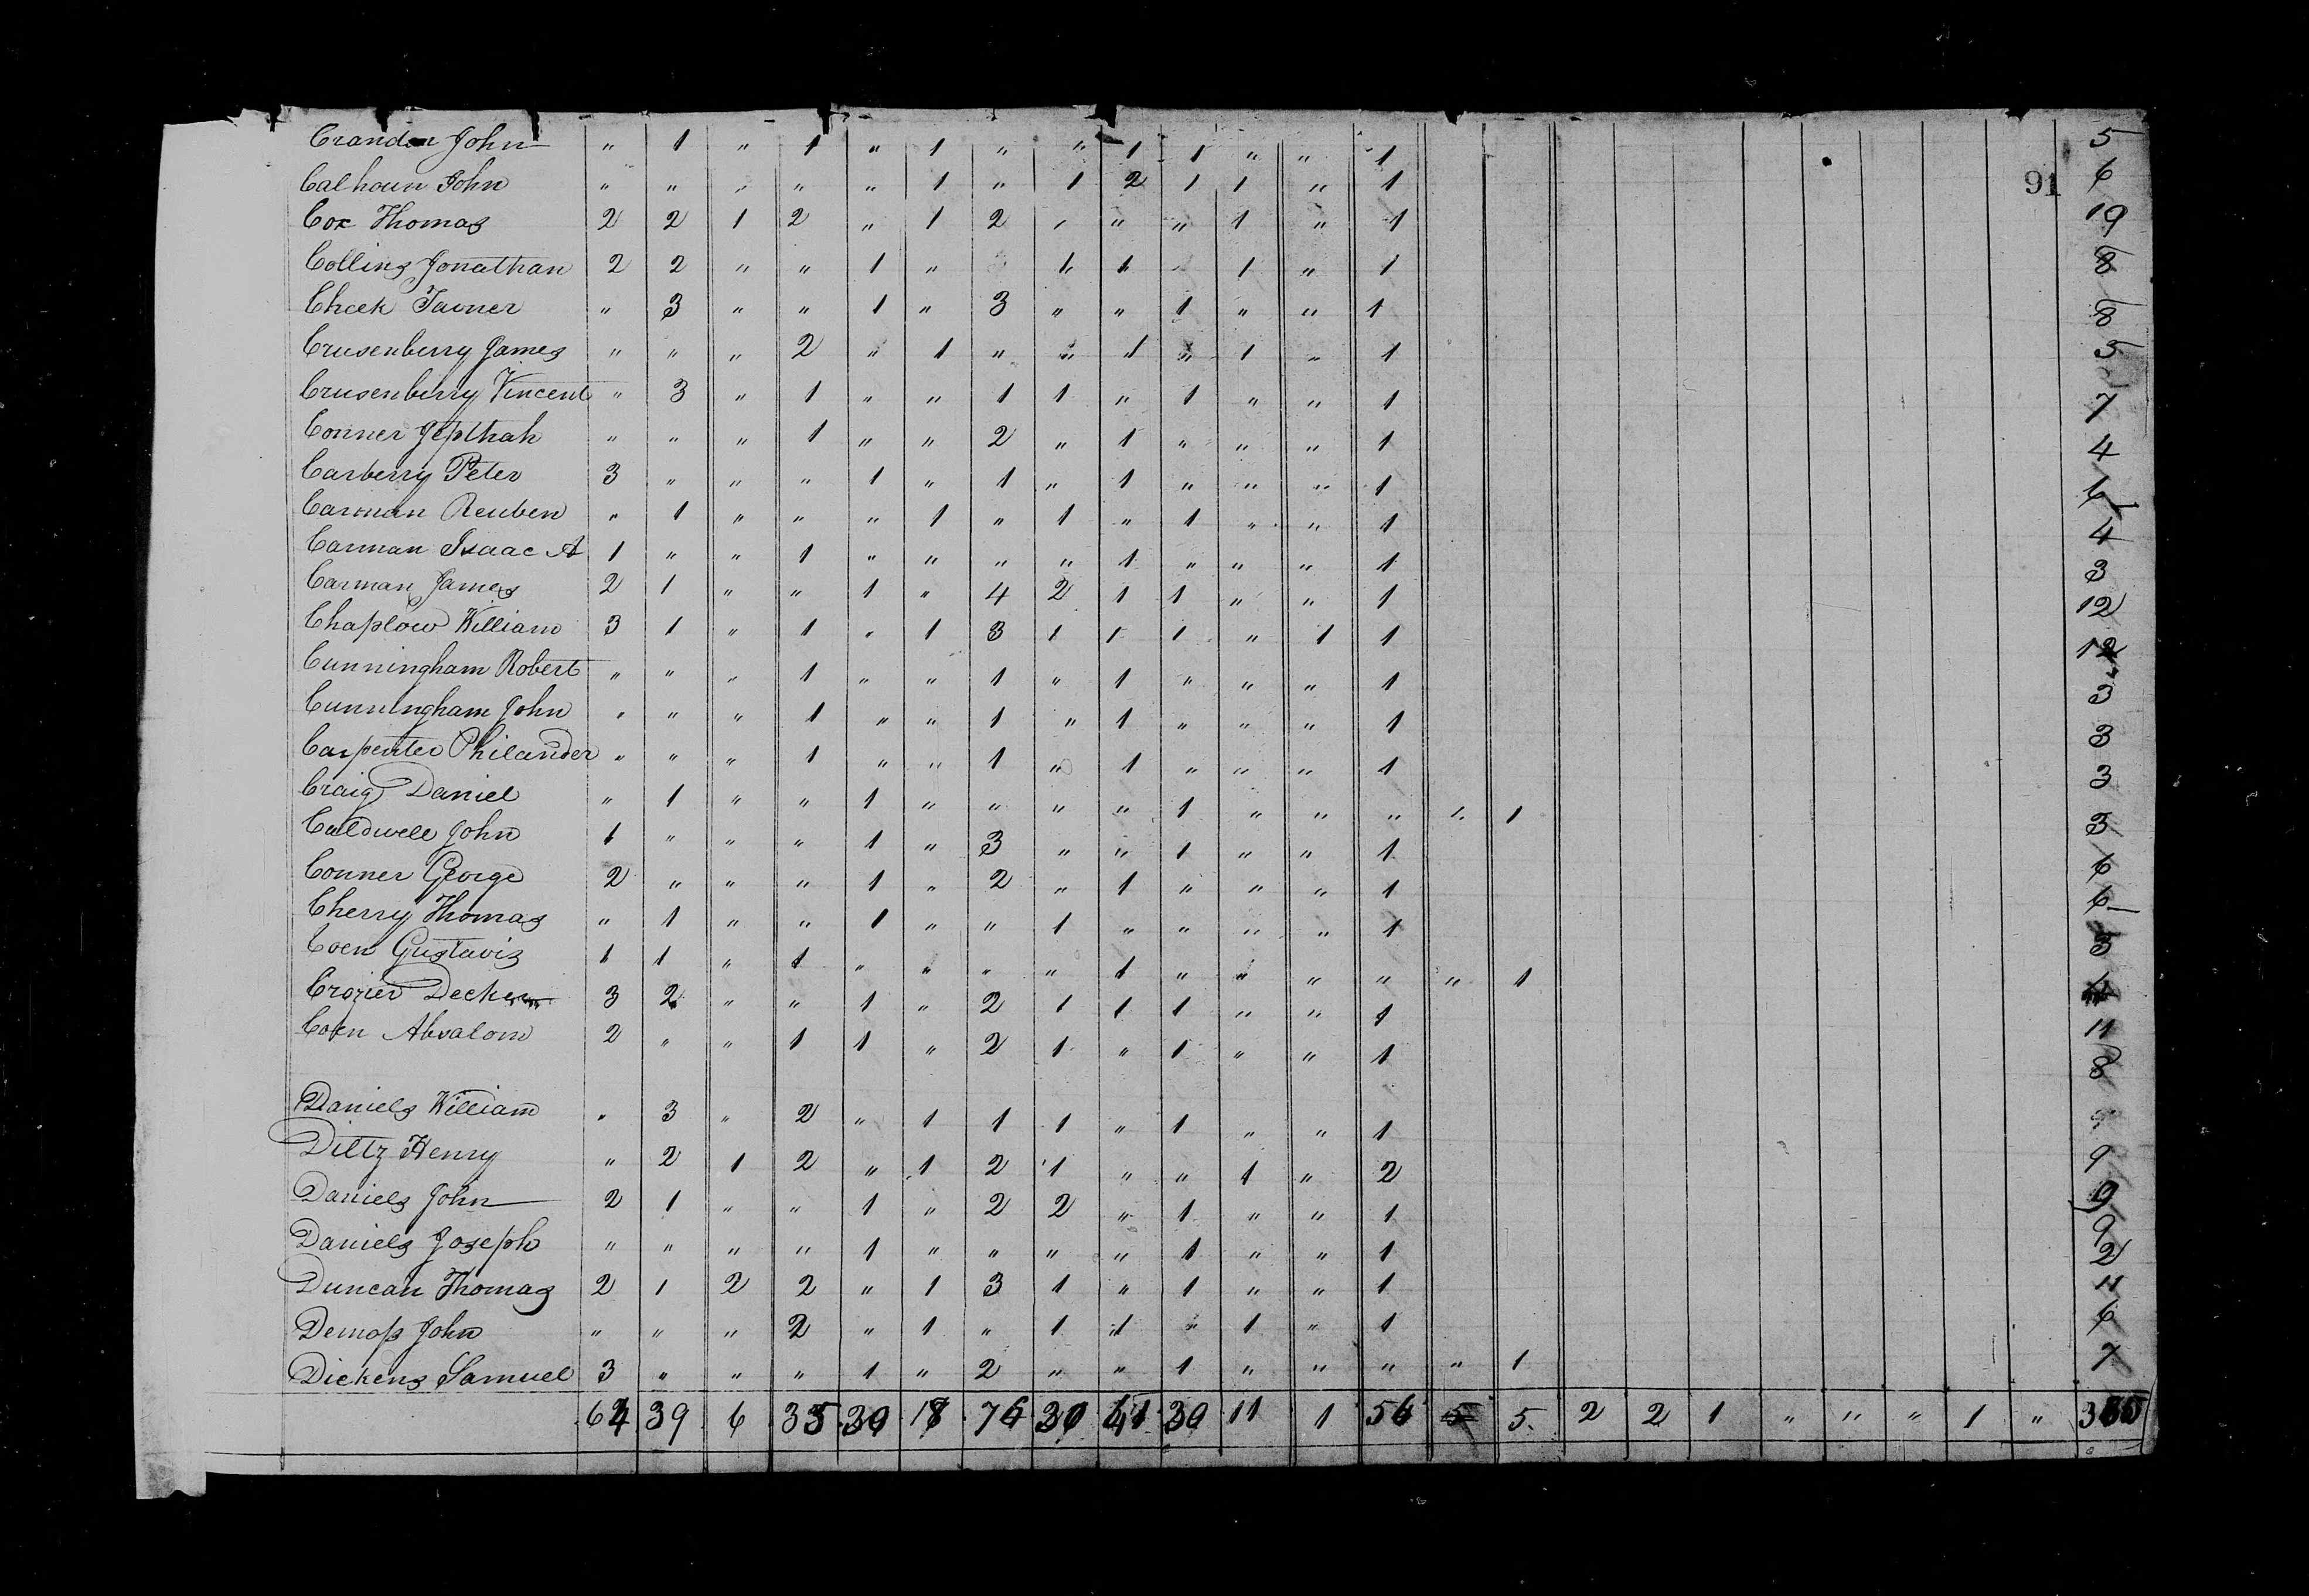 Crandon John " 1 " 1 " 1 " " 1 1 " " 1 5
91
Calhoun John " " " " " 1 " 1 2 1 1 " 1 6
Cox Thomas 2 2 1 2 " 1 2 " " " 1 " 1 19
Collins Jonathan 2 2 " " 1 " 1 1 1 " 1 8
Cheek Tavner " 3 " " 1 " 3 " " 1 " " 1 8
Crusenberry James " " " 2 " 1 " " 1 " 1 " 1 5
Crusenberry Vincent " 3 " 1 " " 1 1 " 1 " " 1 7
Conner Jepthah " " " 1 " " 2 " 1 " " " 1 4
Carberry Peter 3 " " " 1 " 1 " 1 " " " 1 6
Carman Reuben " 1 " " " 1 " 1 " 1 " " 1 4
Carman Isaac A 1 " " 1 " " " " 1 " " " 1 3
Carman James 2 1 " " 1 " 4 2 1 1 " " 1 12
Chaplow William 3 1 " 1 " 1 3 1 1 1 " 1 1 12
Cunningham Robert " " " 1 " " 1 " 1 " " " 1 3
Cunningham John " " " 1 " " 1 " 1 " " " 1 3
Carpenter Philander " " " 1 " " 1 " 1 " " " 1 3
Craig Daniel " 1 " " 1 " " " " 1 " " " " 1 3
Caldwell John 1 " " " 1 " 3 " " 1 " " 1 6
Conner George 2 " " " 1 " 2 " 1 " " " 1 6
Cherry Thomas " 1 " " 1 " " 1 " " " " 1 3
Coen Gustavis 1 1 " 1 " " " " 1 " " " " " 1
Crozier Decker 3 2 " " 1 " 2 1 1 1 " " 1 11
Coen Absalom 2 " " 1 1 " 2 1 " 1 " " 1 8
Daniels William " 3 " 2 " 1 1 1 " 1 " " 1 9
Diltz Henry " 2 1 2 " 1 2 1 " " 1 " 2 9
Daniels John 2 1 " " 1 " 2 2 " 1 " " 1 9
Daniels Joseph " " " " 1 " " " " 1 " " 1 2
Duncan Thomas 2 1 2 2 " 1 3 1 " 1 " " 1 11
Demoss John " " " 2 " 1 " 1 1 " 1 " 1 6
Dickens Samuel 3 " " " 1 " 2 " " 1 " " " " 1 7
39 6 35 30 18 76 30 41 30 11 1 56 5 5 2 2 1 " " " 1 "